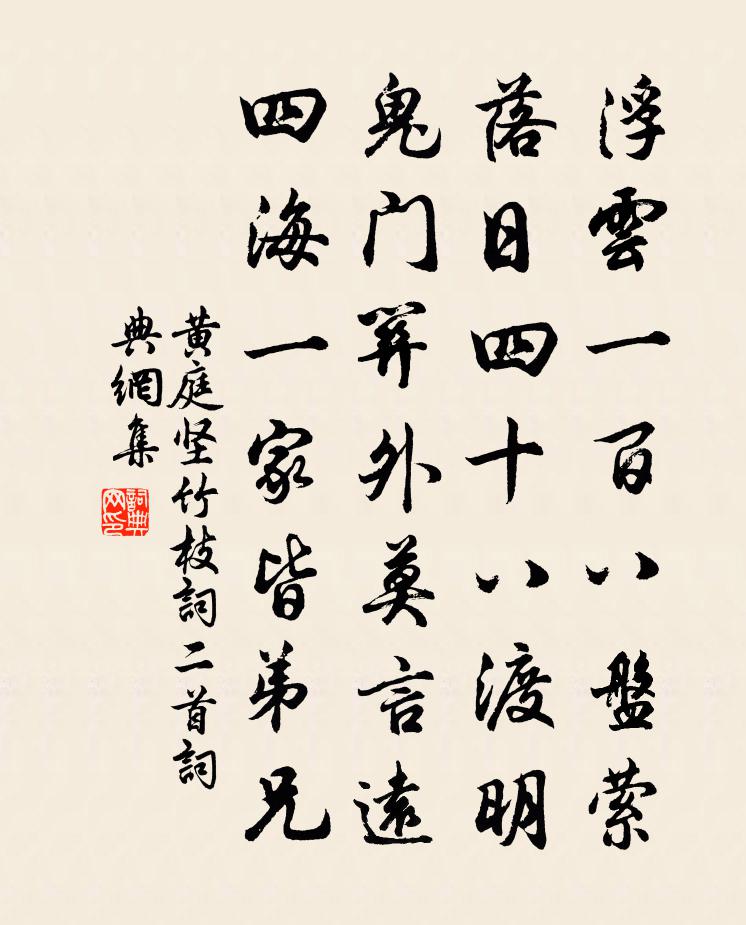 浮雲一百八盤萦
落日四十八渡明
鬼门关外莫言遠
四海一家皆弟兄
黄庭坚竹枝詞二首詞
典網集
詞典
网印